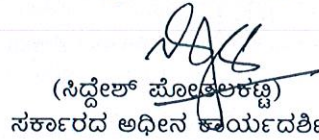 (ಸಿದ್ದೇಶ್ ಪೋತಲಕಟ್ಟಿ)
ಸರ್ಕಾರದ ಅಧೀನ ಕಾರ್ಯದರ್ಶಿ